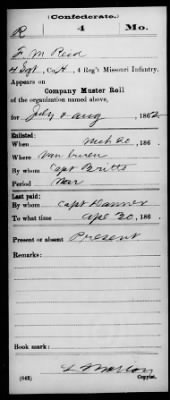 (Confederate.)
R 4 Mo.
F. M. Reid
4 Sgt, Co. H, 4 Reg't Missouri Infantry.
Appears on
Company Muster Roll
of the organization named above,
for July & Aug, 1862.
Enlisted:
When Mch 20, 186 .
Where Van Buren
By whom Capt Britts
Period War
Last paid:
By whom Capt Danner
To what time Apl 30, 186 .
Present or absent Present
Remarks:
Book mark:
(642) Copyist.